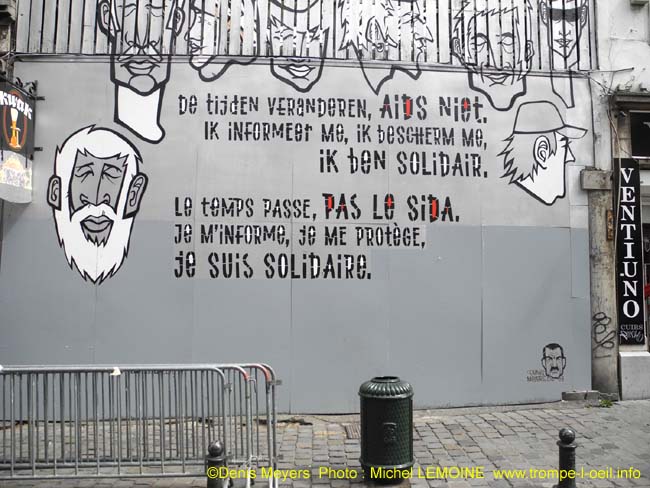 KWAK
De tijden veranderen, AIDS niet.
Ik informeer me, ik bescherm me,
ik ben solidair.
Le temps passe, pas le sida.
Je m'informe, je me protège,
je suis solidaire.
VENTI.UNO
CUIRS
DENIS
MEYERS
©Denis Meyers Photo : Michel LEMOINE www.trompe-l-oeil.info